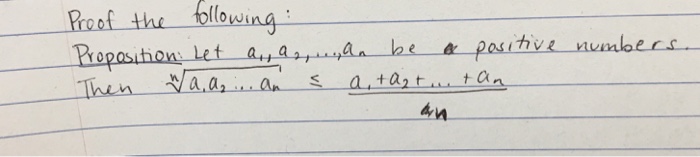 Proof the following:
Proposition: Let a₁, a₂, ..., aₙ be a positive numbers.
Then ⁿ√a₁a₂...aₙ ≤ a₁+a₂+...+aₙ
n